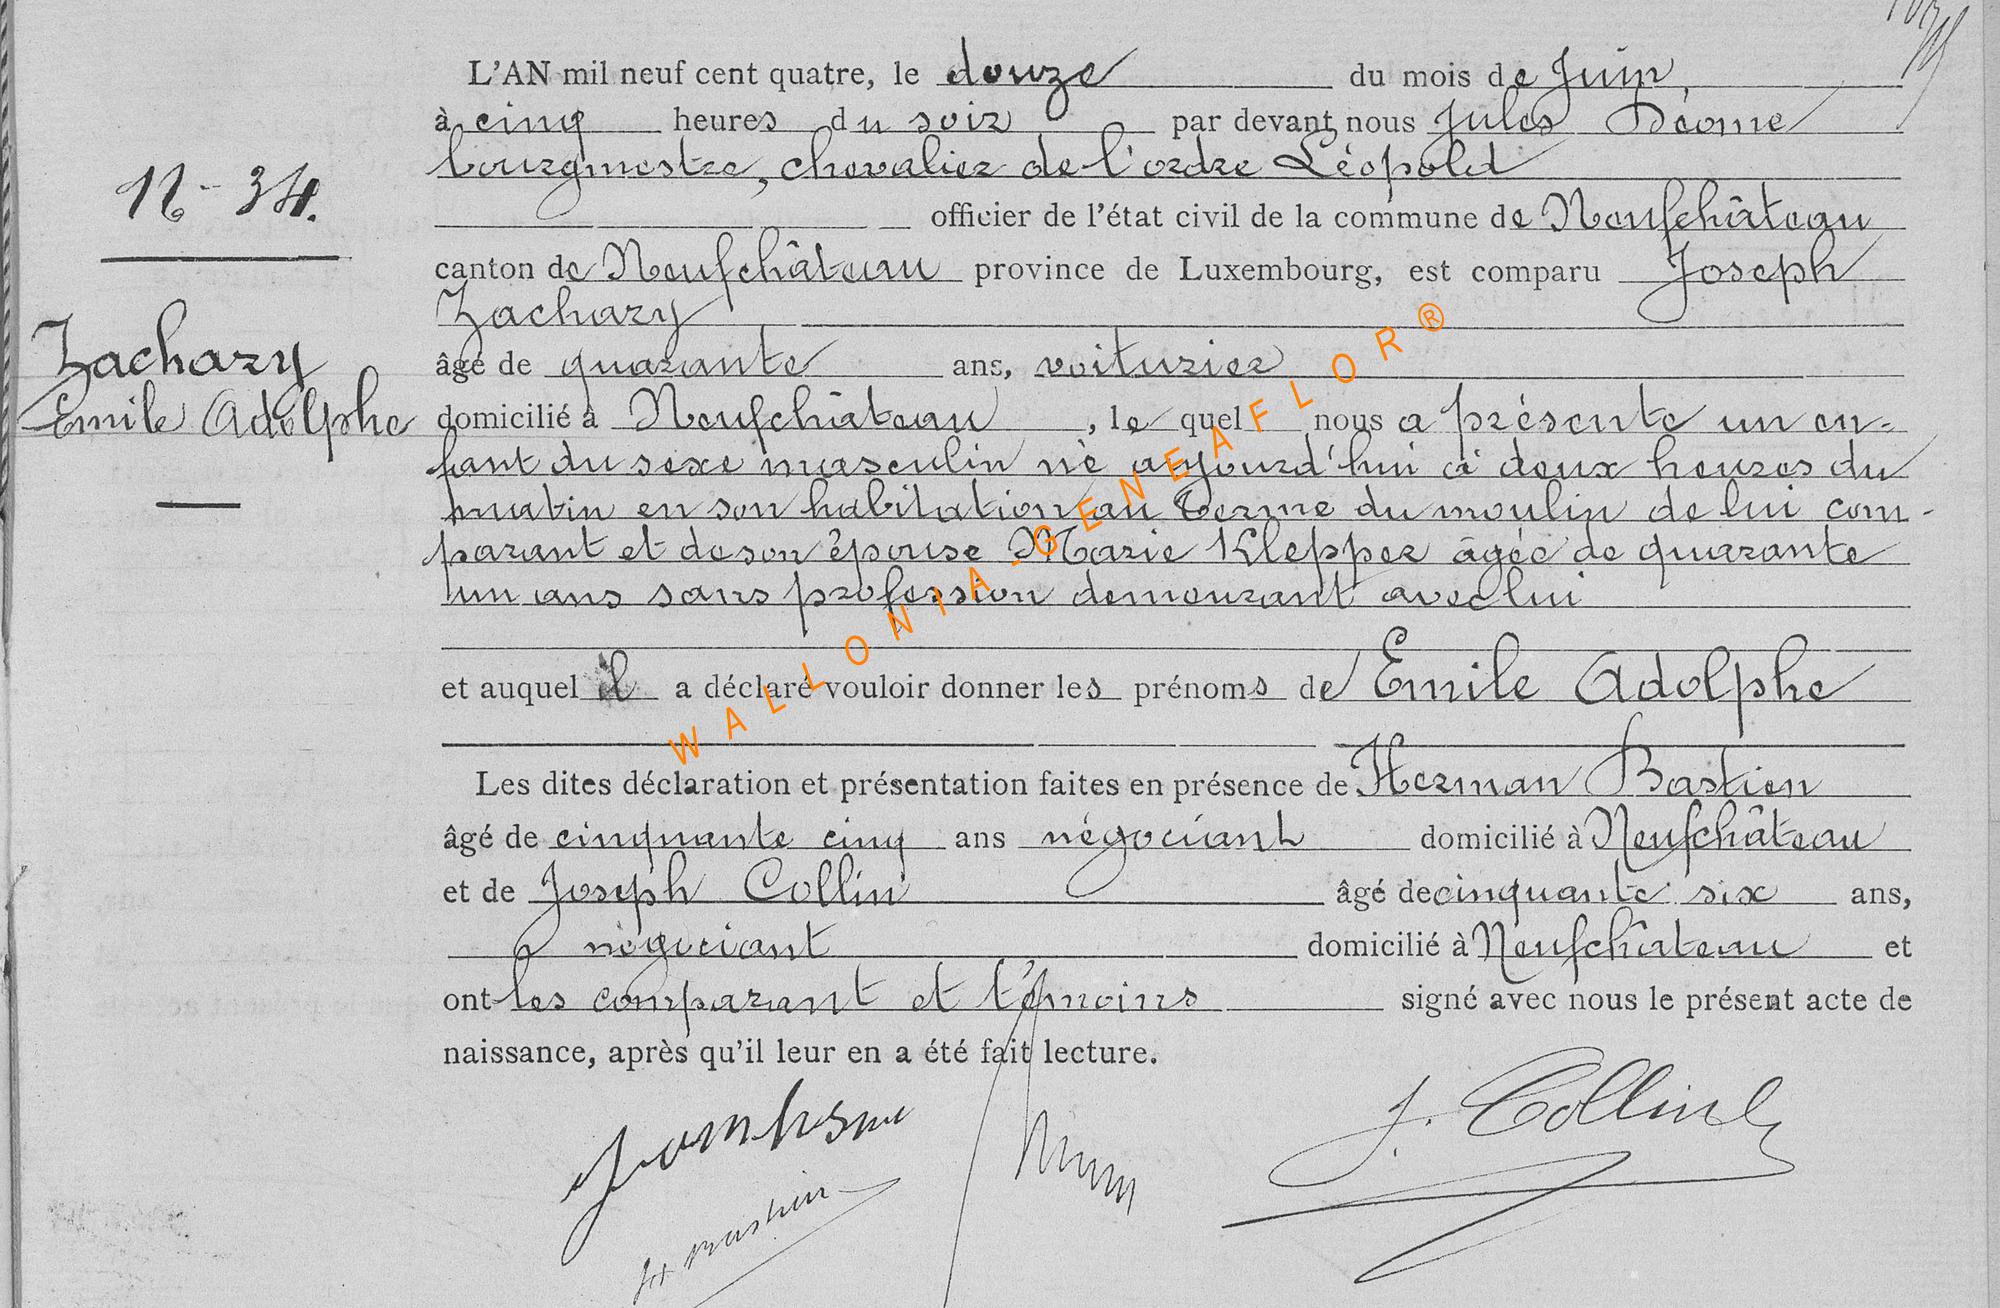 L'AN mil neuf cent quatre, le douze du mois de Juin,
à cinq heures du soir par devant nous Jules Déome
bourgmestre, chevalier de l'ordre Léopold
N - 34.
officier de l'état civil de la commune de Neufchâteau
canton de Neufchâteau province de Luxembourg, est comparu Joseph
Zachary
Zachary
âgé de quarante ans, voiturier
Emile Adolphe
domicilié à Neufchâteau, le quel nous a présenté un en-
fant du sexe masculin né aujourd'hui à deux heures du
matin en son habitation au Terme du moulin de lui com-
parant et de son épouse Marie Klepper âgée de quarante
un ans sans profession demeurant avec lui
et auquel il a déclaré vouloir donner les prénoms de Emile Adolphe
Les dites déclaration et présentation faites en présence de Herman Bastien
âgé de cinquante cinq ans négociant domicilié à Neufchâteau
et de Joseph Collin âgé de cinquante six ans,
négociant domicilié à Neufchâteau et
ont les comparant et témoins signé avec nous le présent acte de
naissance, après qu'il leur en a été fait lecture.
J. Collin
H Bastien
WALLONIA-GENEAFLOR®